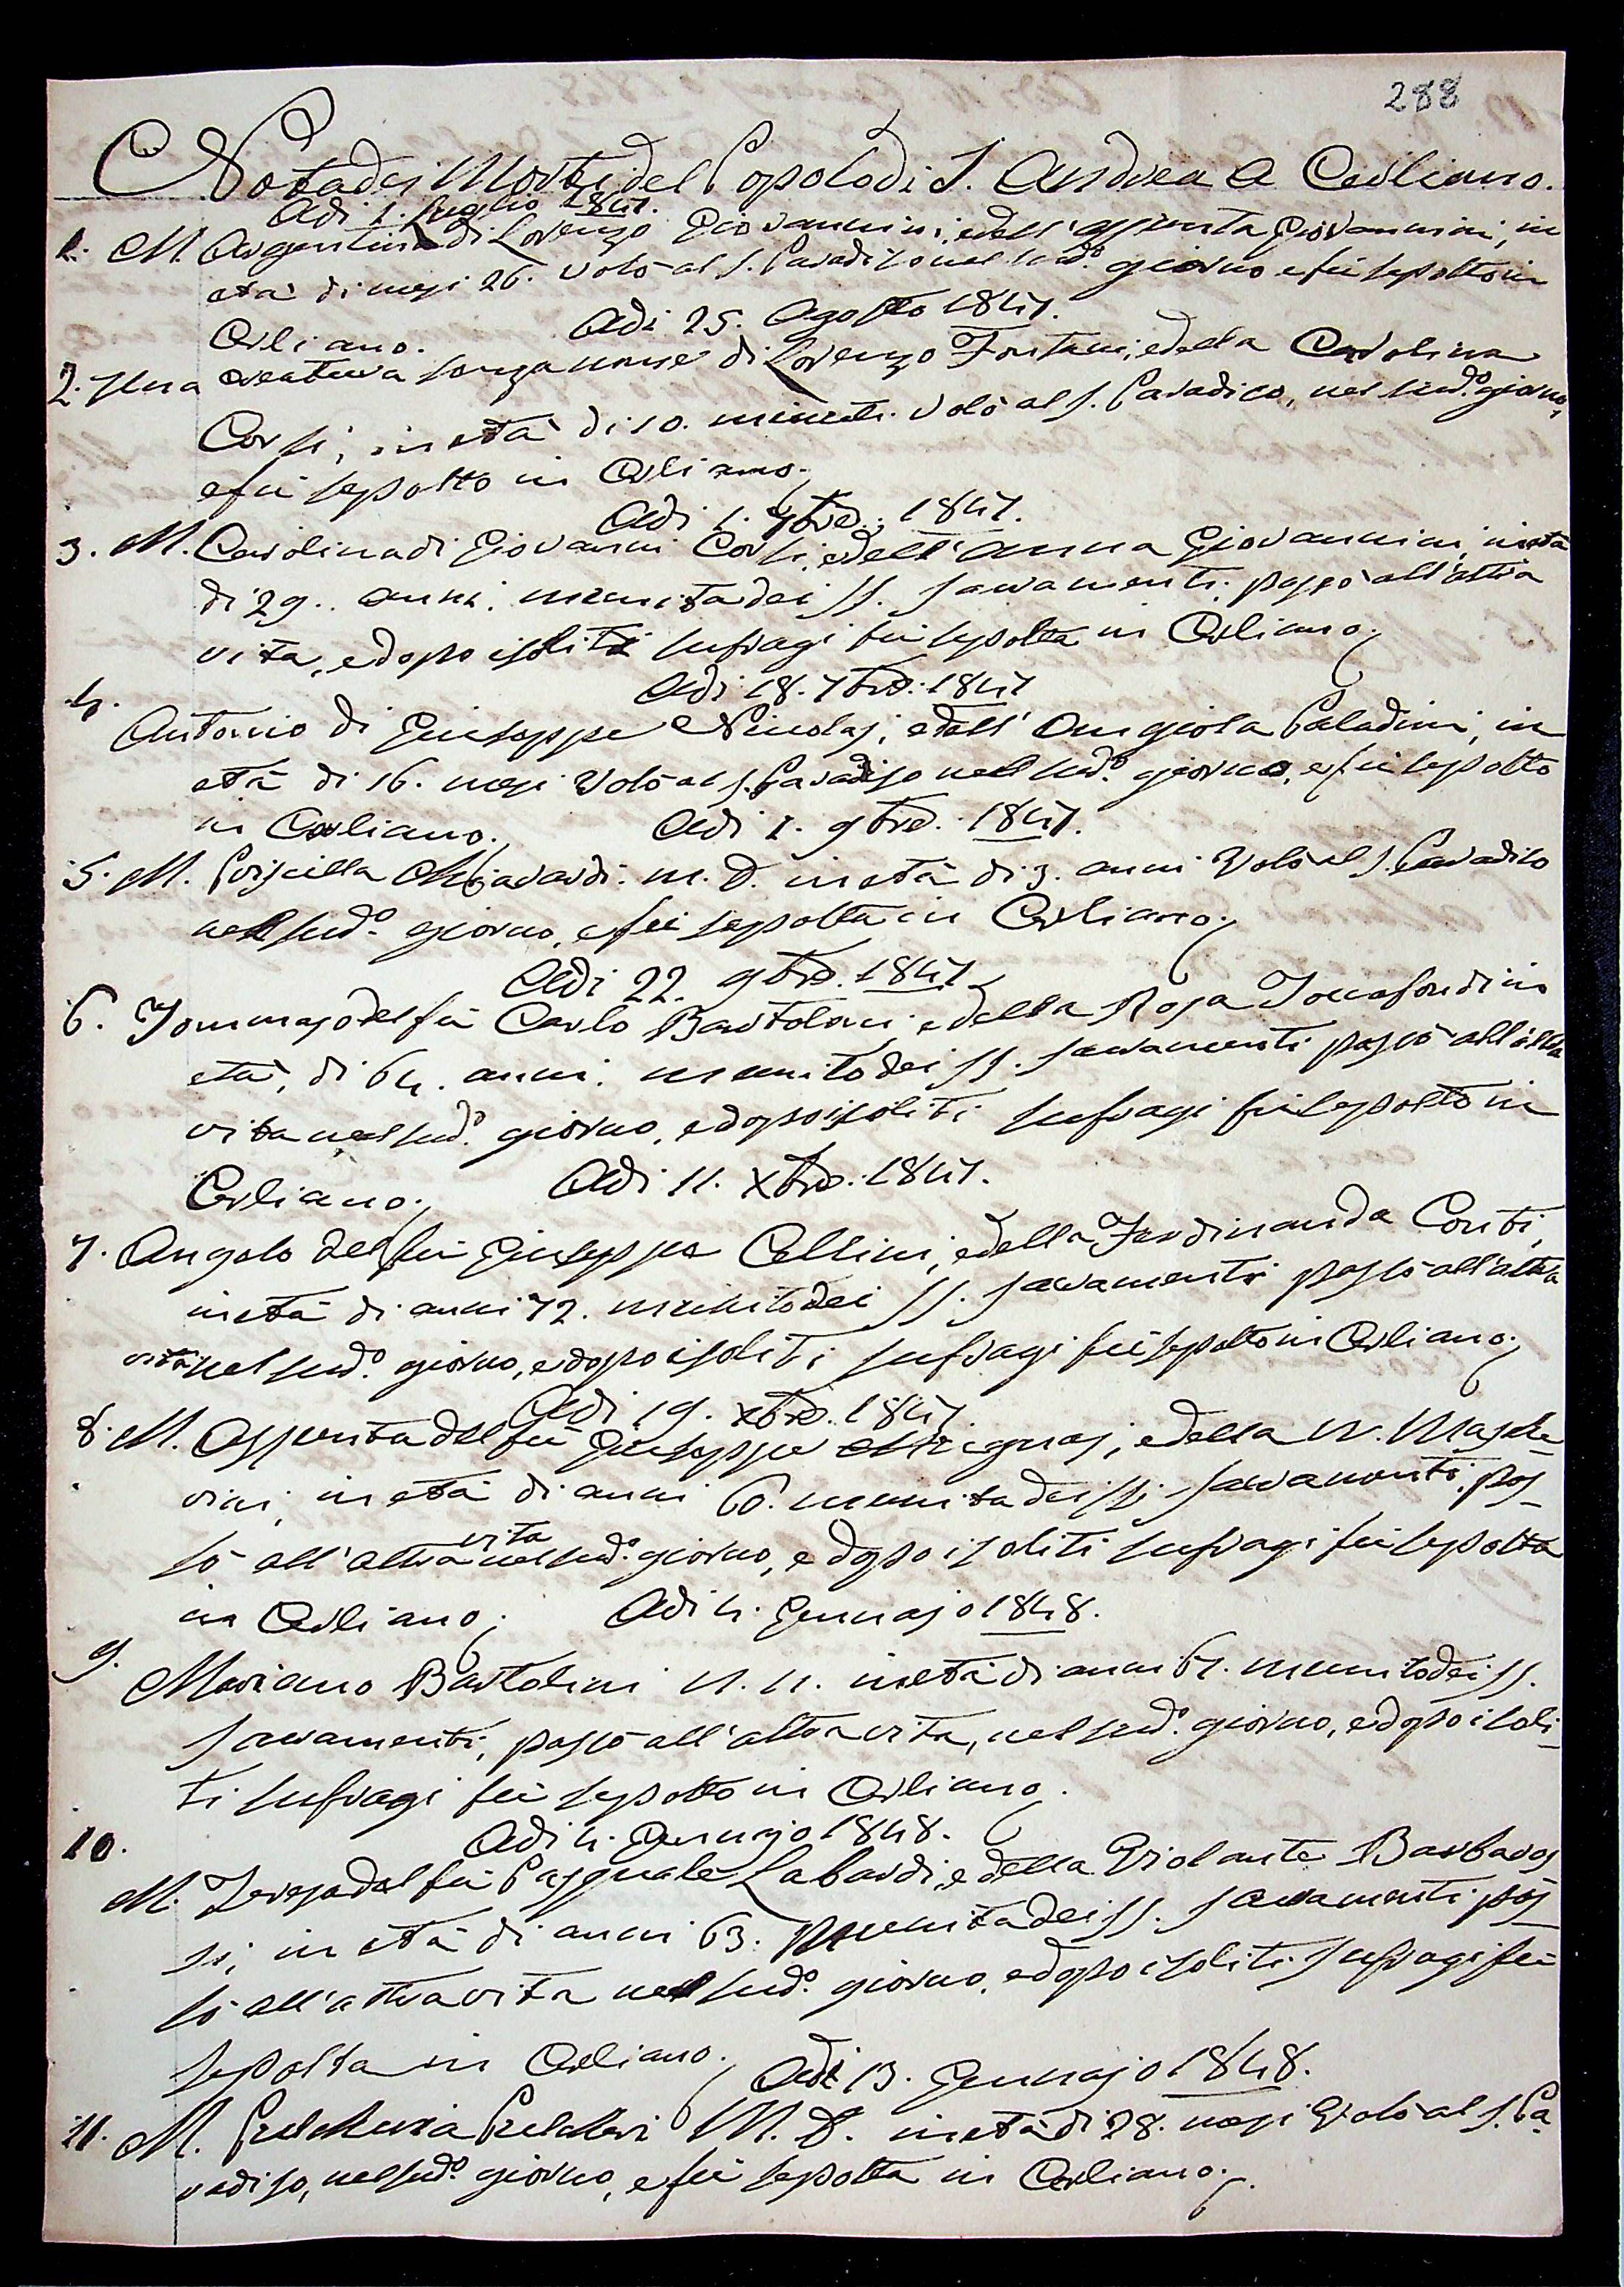 288
Nota dei Morti del Popolo di S. Andrea a Cerliano.
Adi 1. Luglio 1847.
1. M. Argentina di Lorenzo Giovannini, e dell'Assunta Giovannini, in
età di mesi 26. Volò al S. Paradiso nel sud.o giorno e fù sepolto in
Cerliano. Adi 25. Agosto 1847.
2. Una creatura senza nome di Lorenzo Fontani, e della Carolina
Corsi, in età di 10. minuti. Volò al S. Paradiso, nel sud.o giorno,
e fù sepolto in Cerliano.
Adi 1. 7bre. 1847.
3. M. Carolina di Giovanni Corsi, e dell'Anna Giovannini, in età
di 29.. anni. munita dei SS. Sacramenti. passò all'altra
vita, e dopo i soliti sufragi fù sepolta in Cerliano.
Adi 18. 7bre. 1847
4. Antonio di Giuseppe Nicolaj, e dell'Angiola Paladini, in
età di 16. mesi Volò al S. Paradiso nel sud.o giorno, e fù sepolto
in Cerliano. Adi 1. 9bre. 1847.
5. M. Priscilla Chiavardi. m. D. in età di 3. anni Volò al S. Paradiso
nel sud.o giorno, e fù sepolta in Cerliano.
Adi 22. 9bre. 1847.
6. Tommaso del fù Carlo Bartoloni e della Rosa Toccafondi in
età, di 64. anni. munito dei SS. Sacramenti passò all'altra
vita nel sud.o giorno, e dopo i soliti sufragi fù sepolto in
Cerliano. Adi 11. Xbre. 1847.
7. Angelo del fù Giuseppe Cellini, e della Ferdinanda Conti,
in età di anni 72. munito dei SS. Sacramenti passò all'altra
vita nel sud.o giorno, e dopo i soliti sufragi fù sepolto in Cerliano.
Adi 19. Xbre. 1847.
8. M. Assunta del fù Giuseppe e della N.
vini, in età di anni 60. munita dei SS. Sacramenti. pas-
sò all'altra vita nel sud.o giorno, e dopo i soliti sufragi fù sepolta
in Cerliano. Adi 4. Gennajo 1848.
9. Mariano Bartolini N. N. in età di anni munito dei SS.
Sacramenti, passò all'altra vita, nel sud.o giorno, e dopo i soli-
ti sufragi fù sepolto in Cerliano.
Adi 4. Gennajo 1848.
10. M. Teresa del fù Pasquale Labardi, e della Violante Barbaros
si, in età di anni 63. Munita dei SS. Sacramenti pas-
sò all'altra vita nel sud.o giorno, e dopo i soliti sufragi fù
sepolta in Cerliano. Adi 13. Gennajo 1848.
11. M. Pulcheria M. D. in età di 28. mesi Volò al S. Pa-
radiso, nel sud.o giorno, e fù sepolta in Cerliano.